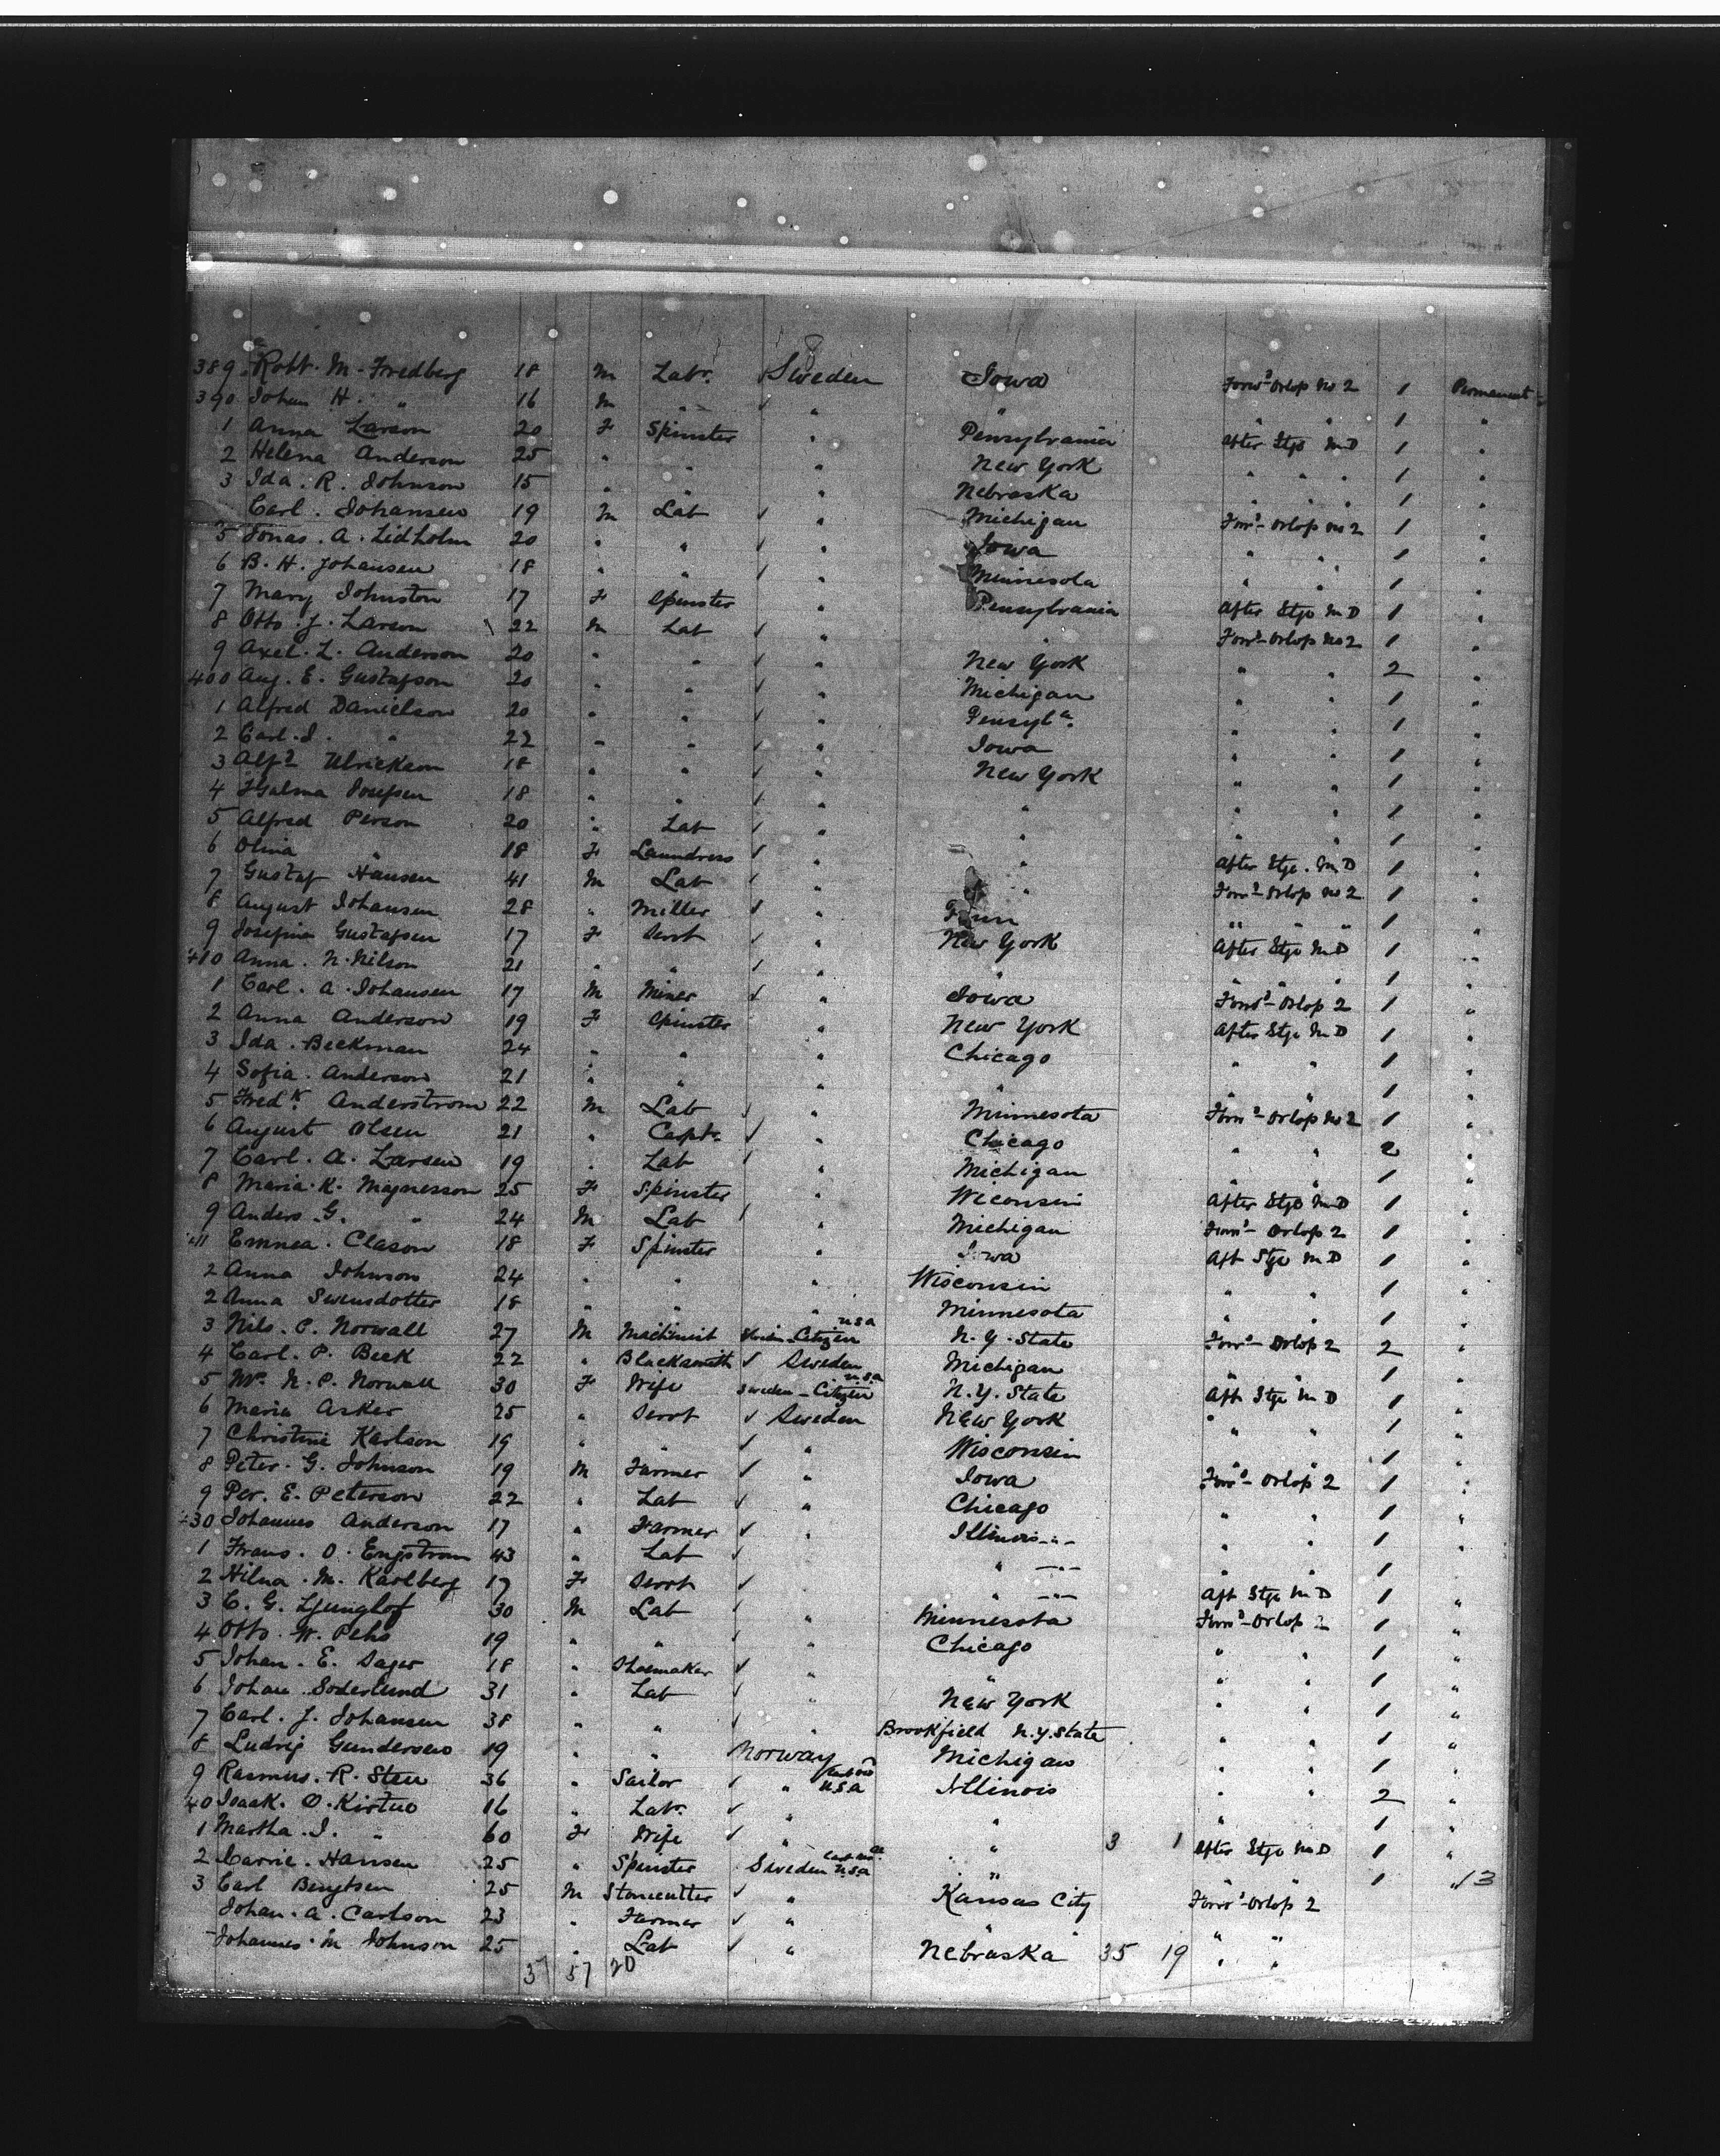 389 Robt. M. Fredberg 18 M Labr. Sweden Iowa Forwd Orlop No 2 1 Permanent
390 Johan H. " 16 M " ✓ " " " " 1 "
1 Anna Larson 20 F Spinster " Pensylvania After Stge M D 1 "
2 Helena Anderson 25 " " " New York " " " 1 "
3 Ida. R. Johnson 15 " " " Nebraska " " " 1 "
Carl. Johansen 19 M Lab ✓ " Michigan Forrd- Orlop No 2 1 "
5 Jonas. A. Lidholm 20 " " ✓ " Iowa " " 1 "
6 B. H. Johansen 18 " " ✓ " Minnesota " " 1 "
7 Mary Johnston 17 F Spinster " Pensylvania After Stge M D 1 "
8 Otto. J. Larson 22 M Lab ✓ " " Forrd- Orlop No 2 1 "
9 Axel. L. Anderson 20 " " ✓ " New York " " 2 "
400 Aug. E. Gustafson 20 " " ✓ " Michigan " " 1 "
1 Alfred Danielson 20 " " ✓ " Pensyla. " " 1 "
2 Carl. I. " 22 " " ✓ " Iowa " " 1 "
3 Alfd Ulrickson 18 " " ✓ " New York " " 1 "
4 Hjalma Josefsen 18 " " ✓ " " " " 1 "
5 Alfred Person 20 " Lab ✓ " " " " 1 "
6 Olina " 18 F Laundress ✓ " " After Stge. M D 1 "
7 Gustaf Hansen 41 M Lab ✓ " " Forrd- Orlop No 2 1 "
8 August Johansen 28 " Miller ✓ " " " " 1 "
9 Josefina Gustafsen 17 F Servt ✓ " New York After Stge M D 1 "
410 Anna. N. Nilson 21 " " ✓ " " " " " 1 "
1 Carl. A. Johansen 17 M Miner ✓ " Iowa Forrd- Orlop 2 1 "
2 Anna Anderson 19 F Spinster " New York After Stge M D 1 "
3 Ida. Beckman 24 " " " Chicago " " 1 "
4 Sofia. Anderson 21 " " " " " " 1 "
5 Fredk. Anderstrom 22 M Lab ✓ " Minnesota Forrd- Orlop No 2 1 "
6 August Olsen 21 " Capt. ✓ " Chicago " " 2 "
7 Carl. A. Larsen 19 " Lab ✓ " Michigan " " 1 "
8 Maria. K. Magnesson 25 F Spinster " Wiconsin After Stge M D 1 "
9 Anders. G. " 24 M Lab ✓ " Michigan Forrd- Orlop 2 1 "
Emnea. Clason 18 F Spinster " Iowa Aft Stge M D 1 "
2 Anna Johnson 24 " " " Wisconsin " " 1 "
2 Anna Swensdotter 18 " " " Minnesota " " 1 "
3 Nils. P. Norwall 27 M Machinist Sweden - Citizen USA N. Y. State Forrd- Orlop 2 2 "
4 Carl. P. Beck 22 " Blacksmith ✓ Sweden Michigan " " 1 "
5 Mrs. N. P. Norwall 30 F Wife Sweden - Citizen USA N. Y. State Aft Stge M D 1 "
6 Maria Asker 25 " Servt ✓ Sweden New York " " " 1 "
7 Christine Karlson 19 " " ✓ " Wisconsin " " 1 "
8 Peter. G. Johnson 19 M Farmer ✓ " Iowa Forrd- Orlop 2 1 "
9 Per. E. Peterson 22 " Lab ✓ " Chicago " " 1 "
430 Johannes Anderson 17 " Farmer ✓ " Illinois " " 1 "
1 Frans. O. Engstrom 43 " Lab ✓ " " " 1 "
2 Hilna. M. Karlberg 17 F Servt ✓ " " Aft Stge M D 1 "
3 C. G. Ljunglof 30 M Lab ✓ " Minnesota Forrd- Orlop 2 1 "
4 Otto. W. Pehs 19 " " ✓ " Chicago " " 1 "
5 Johan. E. Sager 18 " Shoemaker ✓ " " " " 1 "
6 Johan Soderlund 31 " Lab ✓ " New York " " 1 "
7 Carl. J. Johansen 38 " " ✓ " Brookfield N.Y. State " " 1 "
8 Ludvig Gundersen 19 " " Norway Michigan " " 1 "
9 Rasmus. R. Sten 36 " Sailor ✓ " USA Illinois " " 2 "
40 Isaak. O. 16 " Labr. ✓ " " " 1 "
1 Martha. I. " 60 F Wife ✓ " " 3 1 After Stge M D 1 "
2 Carrie. Hansen 25 " Spinster Sweden USA " " " 1 " 13
3 Carl Bengtsen 25 M Stonecutter ✓ " Kansas City Forrd- Orlop 2
Johan. A. Carlson 23 " Farmer ✓ " " " "
Johannes. M Johnson 25 " Lab ✓ " Nebraska 35 19 " "
37 57 20